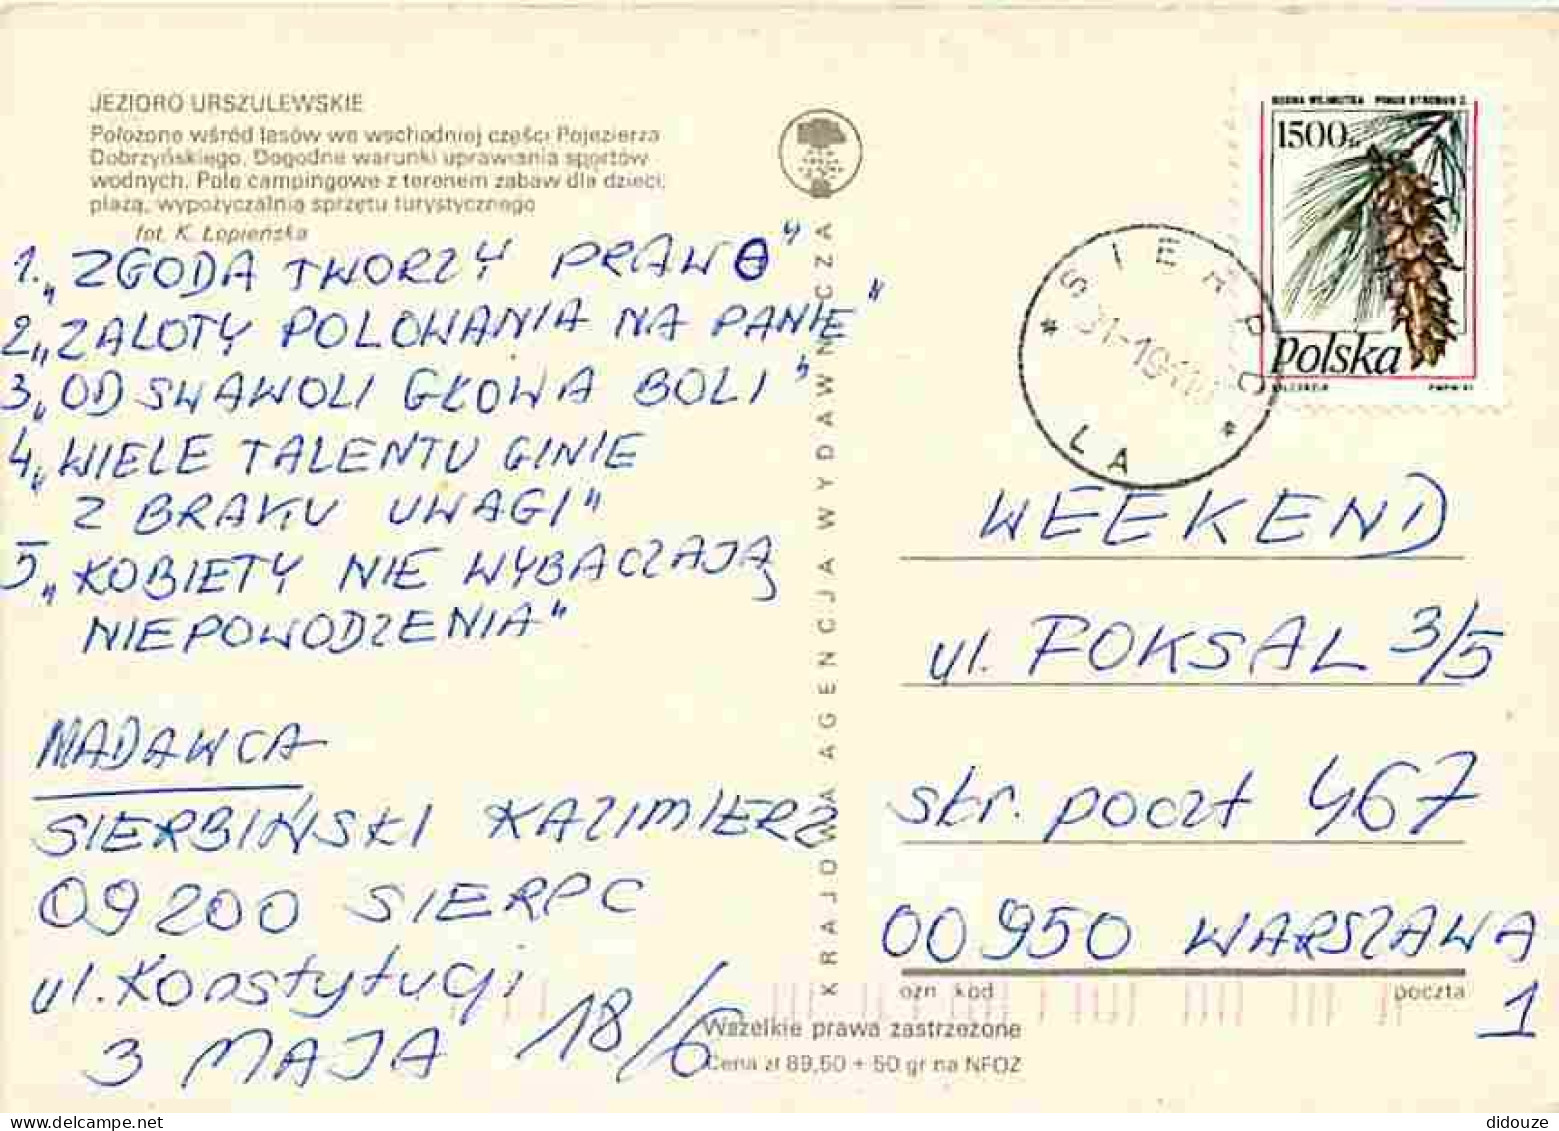 JEZIORO URSZULEWSKIE
Położone wśród lasów we wschodniej części Pojezierza
Dobrzyńskiego. Dogodne warunki uprawiania sportów
wodnych. Pole campingowe z terenem zabaw dla dzieci,
plażą, wypożyczalnią sprzętu turystycznego
fot. K. Łopieńska
1. „ZGODA TWORZY PRAWO"
2. „ZALOTY POLOWANIA NA PANIE"
3. „OD SWAWOLI GŁOWA BOLI"
4. „WIELE TALENTU GINIE
Z BRAKU UWAGI"
5. „KOBIETY NIE WYBACZAJĄ
NIEPOWODZENIA"
NADAWCA
SIERBIŃSKI KAZIMIERZ
09200 SIERPC
ul. Konstytucji
3 MAJA 18/6
KRAJOWA AGENCJA WYDAWNICZA
PINUS STROBUS L.
1500
Polska
PWPW
SIERPC
LA
WEEKEND
ul. FOKSAL 3/5
skr. poczt 467
00950 WARSZAWA
1
ozn kod
poczta
Wszelkie prawa zastrzeżone
Cena zł 89,50 + 50 gr na NFOZ
didouze